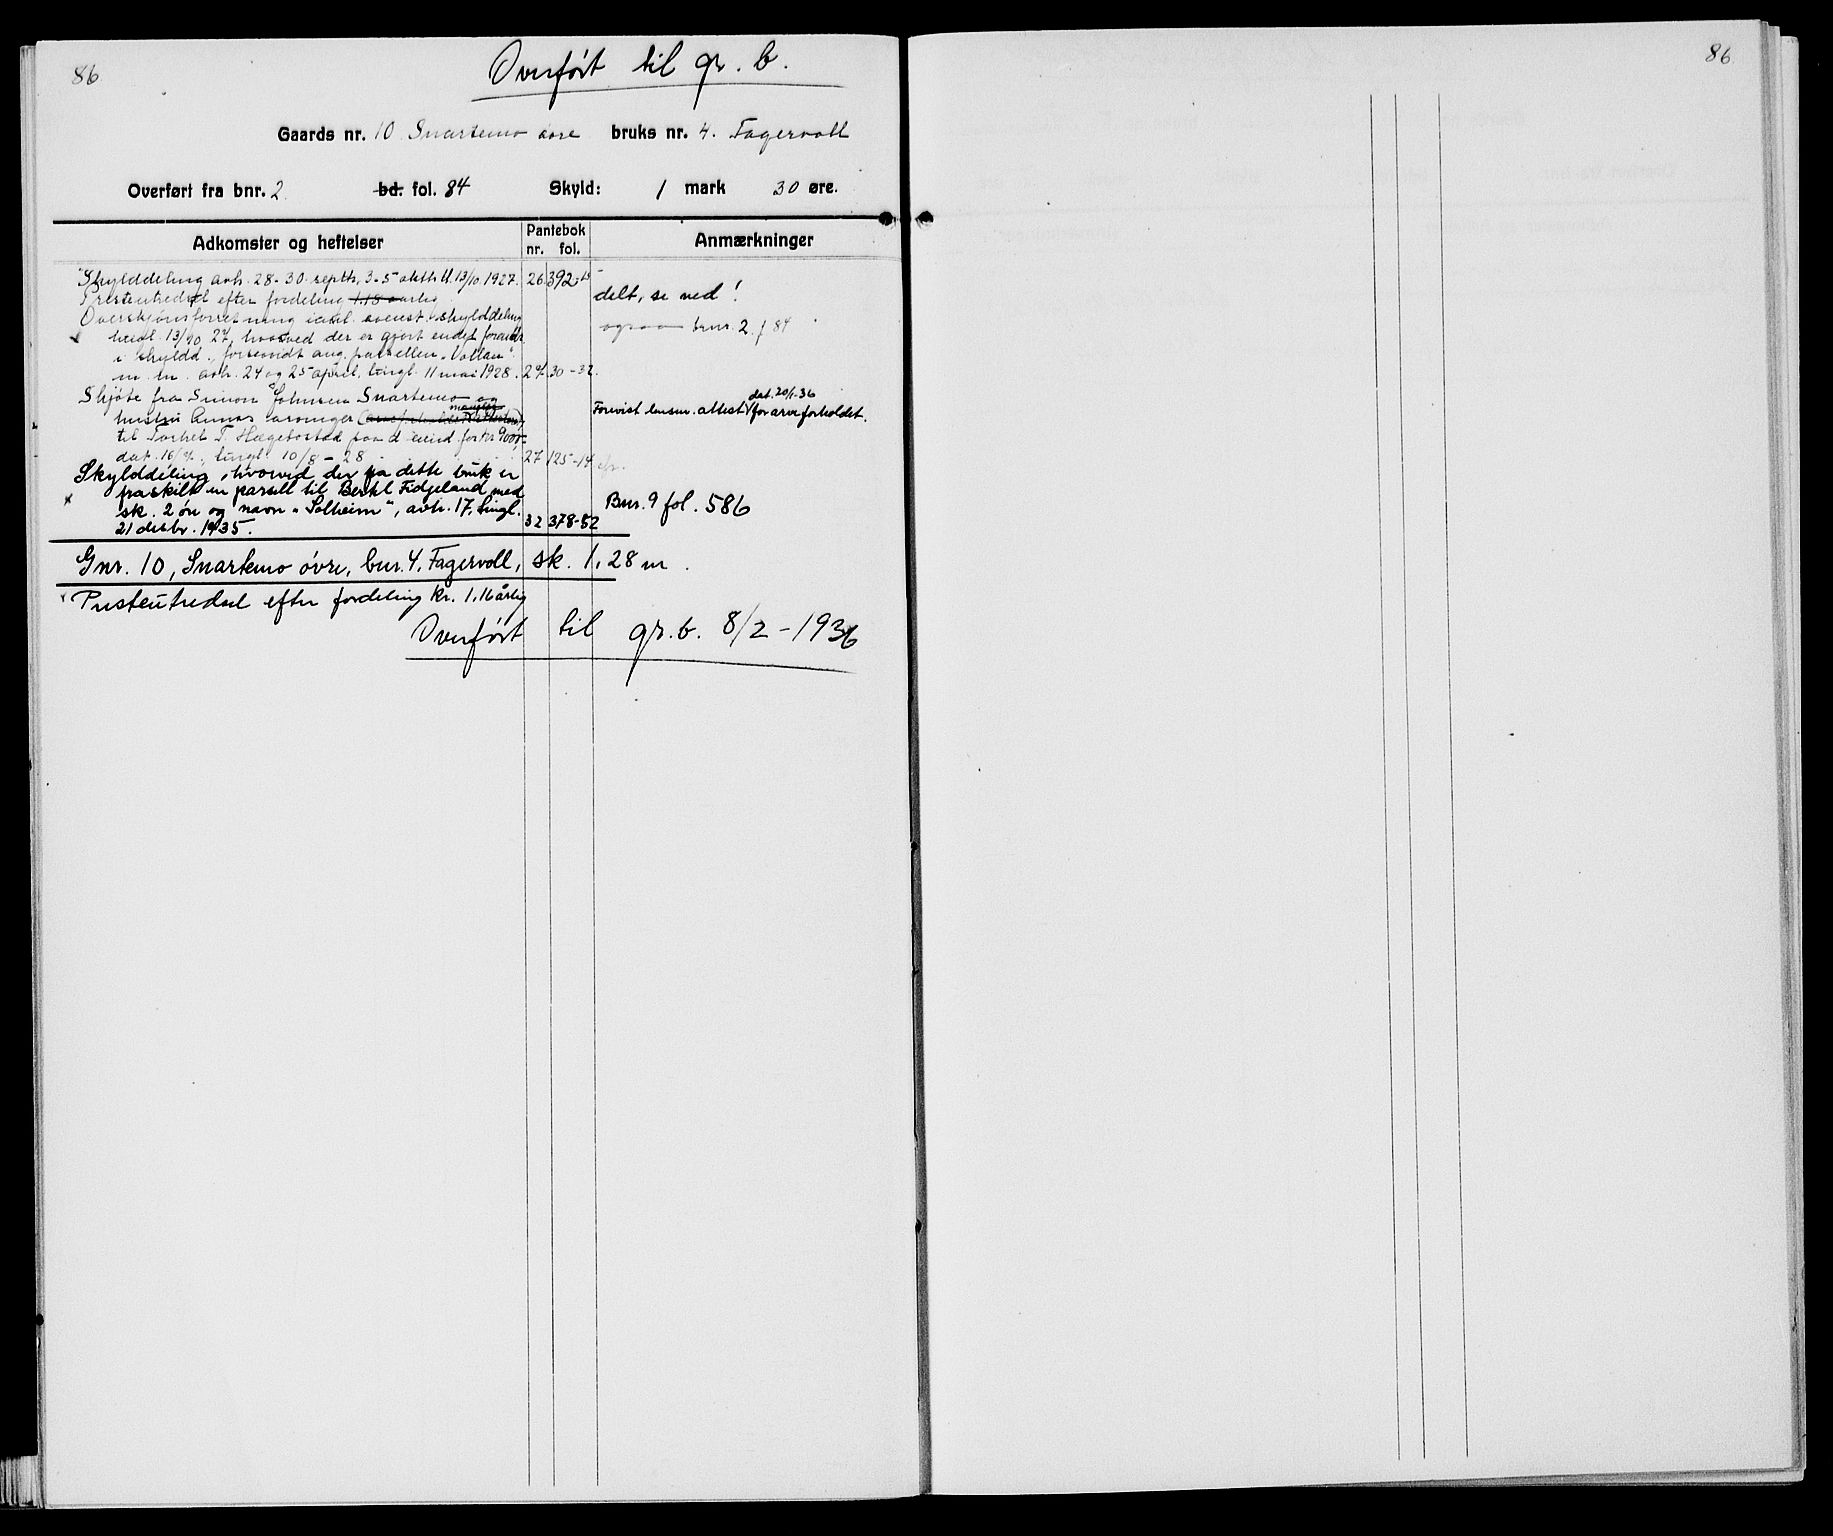 86
Overført til gr. b.
86
Gaards nr. 10 Snartemo övre bruks nr. 4. Fagervoll
Overført fra bnr. 2 bd. fol. 84 Skyld: 1 mark 30 øre.
Adkomster og heftelser Pantebok nr. fol. Anmærkninger
Skylddeling avh. 28-30. septbr, 3-5 oktbr. tl. 13/10 1927. 26 392
delt, se ned!
efter fordeling 1.18 aarlig
Overskjønsforretning skylddeling
ogsaa bnr. 2. f 84
tingl. 13/10 27, hvorved der er gjort endel forandr.
i skyldd., forsaavidt ang. parsellen "Vollan"
m. m. avh. 24 og 25 april, tingl. 11 mai 1928. 27 30-32.
Skjøte fra Simon Johnsen Snartemo og
hustru Annas arvinger
mangler
Forevist lensm. attest dat. 20/1-36 for arveforholdet.
til Torkel T. Hægebostad paa d. eiend. for kr 9000,-
dat. 16/7, tingl. 10/8-28 27 125-14
Skylddeling, hvorved der fra dette bruk er
fraskilt en parsell til Bertel Fidjeland med
sk. 2 øre og navn "Solheim", avh. 17, tingl.
21 desbr. 1935. 32 378-82
Bnr. 9 fol. 586
Gnr. 10, Snartemo øvre, bnr. 4, Fagervoll, sk. 1,28 m.
Presteutredsel efter fordeling kr. 1,16 årlig
Overført til gr. b. 8/2-1936